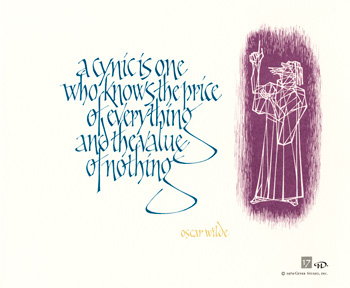 a cynic is one
who knows the price
of everything
and the value
of nothing
oscar wilde
17